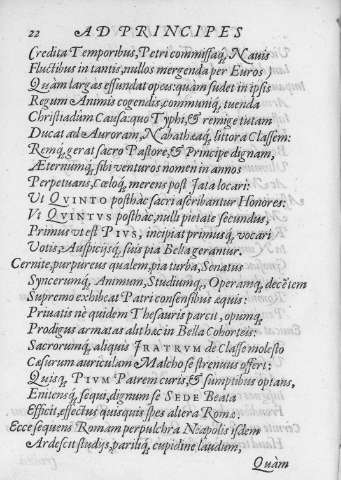 22 AD PRINCIPES
Credita Temporibus, Petri commissaq́, Nauis
Fluctibus in tantis, nullos mergenda per Euros)
Quàm largas effundat opes: quàm sudet in ipsis
Regum Animis cogendis, communiq́, tuenda
Christiadûm Causa: quo Typhi, & remige tutam
Ducat ad Auroram, Nabathæaq́, littora Classem:
Remq́, gerat sacro Pastore, & Principe dignam,
Æternumq́, sibi venturos nomen in annos
Perpetuans, Cœloq́, merens post fata locari:
Vt QVINTO posthàc sacri ascribantur Honores:
Vt QVINTVS posthàc, nulli pietate secundus,
Primus vt est PIVS, incipiat primusq́, vocari
Votis, Auspicijsq́, suis pia Bella gerantur.
Cernite, purpureus qualem, pia turba, Senatus
Syncerumq́, Animum, Studiumq́, Operamq́, decētem
Supremo exhibeat Patri consensibus æquis:
Priuatis nè quidem Thesauris parcit, opumq́,
Prodigus armatas alit hàc in Bella Cohorteis:
Sacrorumq́, aliquis FRATRVM de Classe molesto
Cæsurum auriculam Malcho se strenuus offert:
Quisq́, PIVM Patrem curis, & sumptibus optans,
Emitensq́, sequi, dignum se SEDE Beata
Efficit, effectus quisquis spes altera Romæ.
Ecce sequens Romam perpulchra Neapolis isdem
Ardescit studijs, pariliq́, cupidine laudum,
Quàm